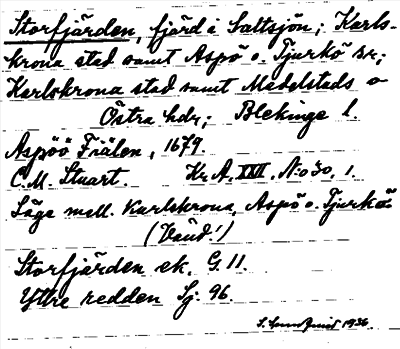 Storfjärden, fjärd i Saltsjön; Karls-
krona stad samt Aspö o. Tjurkö sr;
Karlskrona stad samt Medelstads o
Östra hdr; Blekinge l.
Aspöö Fiälen, 1679.
C.M. Stuart. Kr.A. XXVI, N:o 30, 1.
Läge mell. Karlskrona, Aspö o. Tjurkö
(Vänd!)
Storfjärden ek. G 11.
Yttre redden Sj. 96.
1936